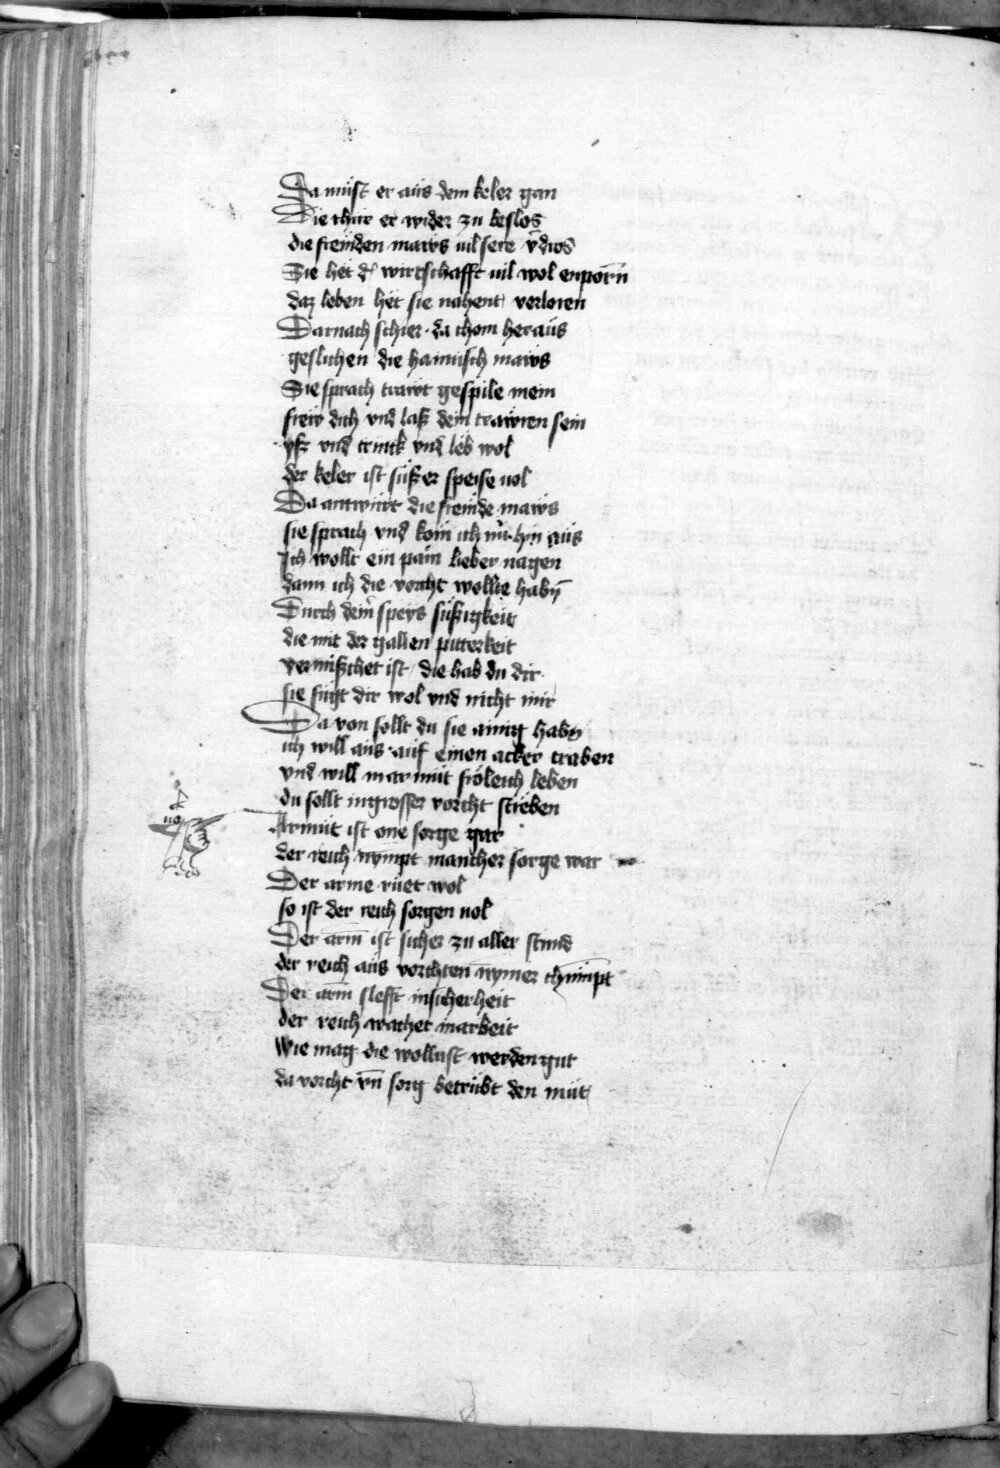 Da müst er aüs dem keler gan
Die thür er wider zu beslos
die fremden maws uil sere v̄dros
Sie het d' wirtschafft uil wol enporn̄
daz leben het sie nahent verloren
Darnach schier da chom heraüs
geslichen die haimisch maws
Sie sprach trawt gespile mein
frew dich vnd laß dein trawren sein
yß vnd trinck vnd leb wol
der keler ist süßer speise uol
Da antwürt die fremde maws
sie sprach vnd kom ich nür hin aüs
Ich wollt ein pain lieber nagen
dann ich die vorcht wollte habn̄
Durch dein speys süßigkeit
die mit der gallen pitterkeit
vermischet ist die hab du dir
sie fügt dir wol vnd nicht mir
Da von sollt du sie ainig habn
ich will aüs auf einen acker traben
vnd will in armüt frölich leben
du sollt ingrosser vorcht streben
Armüt ist one sorge gar
der reich nympt mancher sorge war
Der arme rüet wol
so ist der reich sorgen uol
Der arm ist sicher zu aller stund
der reich aüs vorchten nymer chümpt
Der arm slefft insicherheit
der reich wachet inarbeit
Wie mag die wollust werden gut
da vorcht vn̄ sorg betrübt den müt